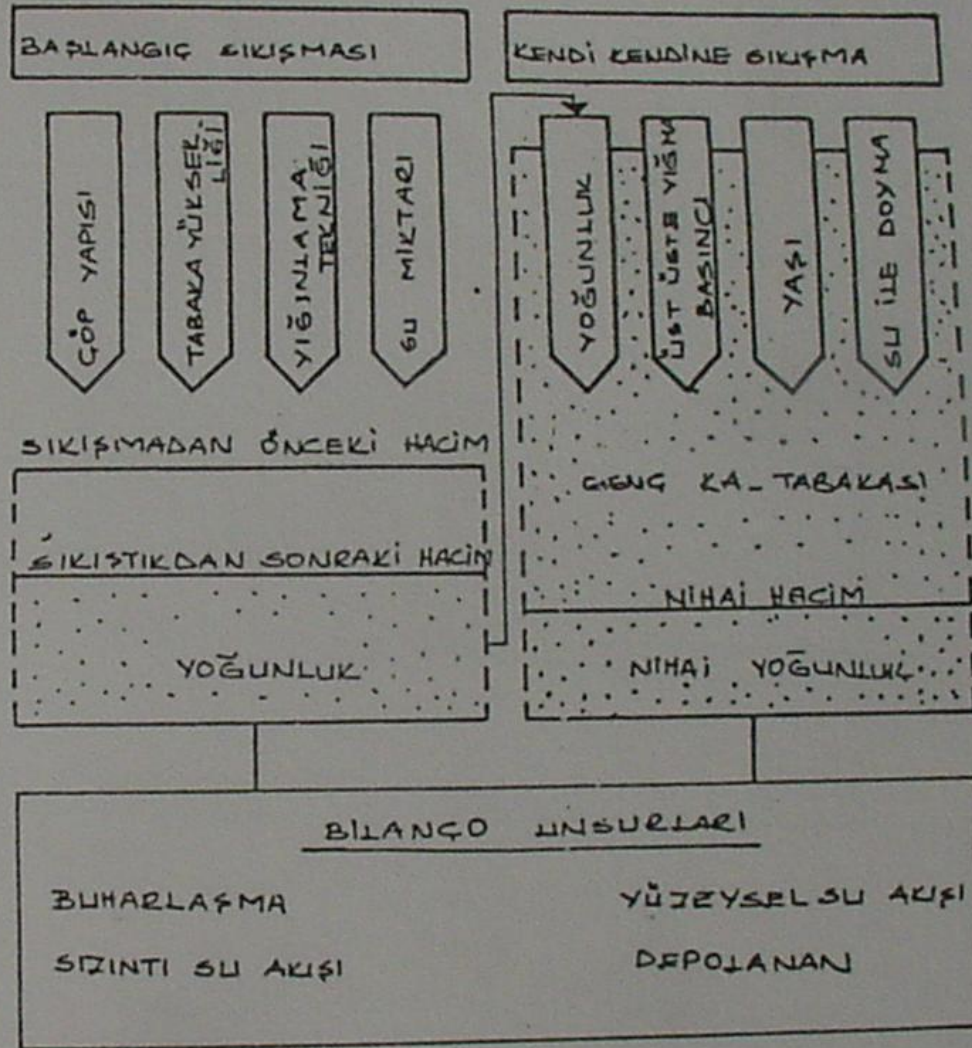 BAŞLANGIÇ SIKIŞMASI
KENDİ KENDİNE SIKIŞMA
ÇÖP YAPISI
TABAKA YÜKSEK-
LİĞİ
YIĞINLAMA
TEKNİĞİ
SU MİKTARI
YOĞUNLUK
ÜST ÜSTE YIĞMA
BASINCI
YAŞI
SU İLE DOYMA
SIKIŞMADAN ÖNCEKİ HACİM
SIKIŞTIKDAN SONRAKİ HACİM
YOĞUNLUK
GENÇ KA-TABAKASI
NİHAİ HACİM
NİHAİ YOĞUNLUK
BİLANÇO UNSURLARI
BUHARLAŞMA
YÜZEYSEL SU AKIŞI
SIZINTI SU AKIŞI
DEPOLANAN